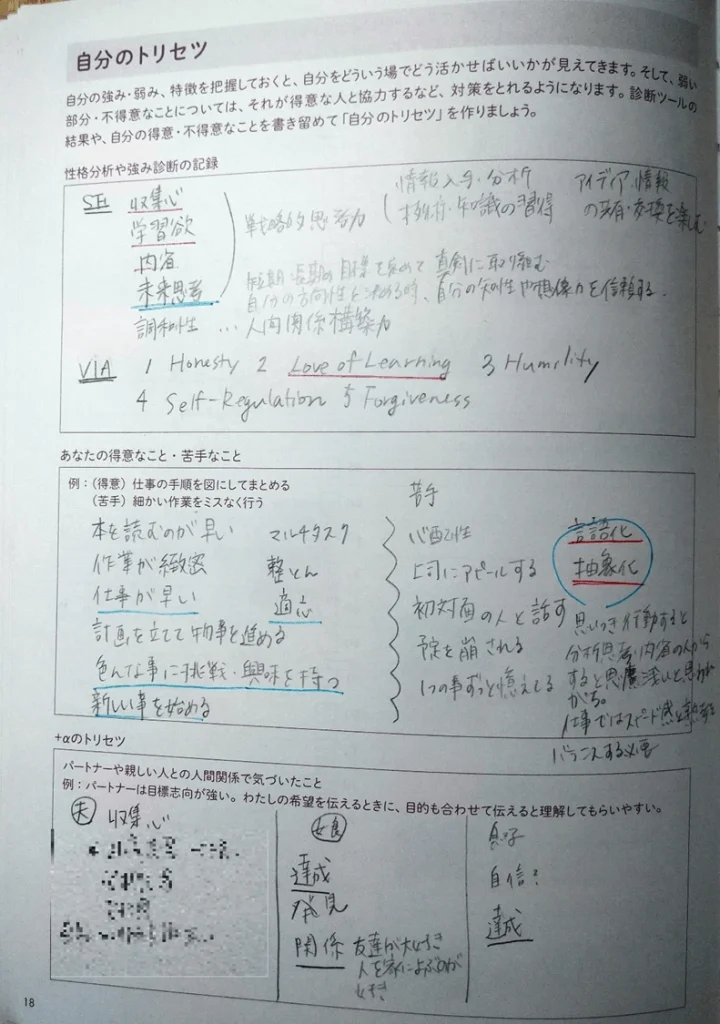 自分のトリセツ
自分の強み・弱み、特徴を把握しておくと、自分をどういう場でどう活かせばいいかが見えてきます。そして、弱い
部分・不得意なことについては、それが得意な人と協力するなど、対策をとれるようになります。診断ツールの
結果や、自分の得意・不得意なことを書き留めて「自分のトリセツ」を作りましょう。
性格分析や強み診断の記録
SF 収集心
学習欲
内省
未来思考
戦略的思考力
情報入手・分析
技術・知識の習得
アイディア 情報
の共有・交換を楽しむ
短期・長期の目標を定めて 真剣に取り組む
自分の方向性を決める時、自分の知性や想像力を信頼する.
調和性 … 人間関係構築力
VIA 1 Honesty 2 Love of Learning 3 Humility
4 Self-Regulation 5 Forgiveness
あなたの得意なこと・苦手なこと
例：（得意）仕事の手順を図にしてまとめる
（苦手）細かい作業をミスなく行う
本を読むのが早い マルチタスク
作業が緻密 整とん
仕事が早い 適応
計画を立てて物事を進める
色んな事に挑戦・興味を持つ
新しい事を始める
苦手
心配性
上司にアピールする
初対面の人と話す
予定を崩される
1つの事ずっと憶えてる
言語化
抽象化
思いつき行動すると
分析思考・内省の人から
すると思慮浅いと思われ
がち。
仕事ではスピード感と
バランスする必要
+αのトリセツ
パートナーや親しい人との人間関係で気づいたこと
例：パートナーは目標志向が強い。わたしの希望を伝えるときに、目的も合わせて伝えると理解してもらいやすい。
夫 収集心
娘
達成
発見
関係 友達が大好き
人を家によぶのが
好き
息子
自信?
達成
18